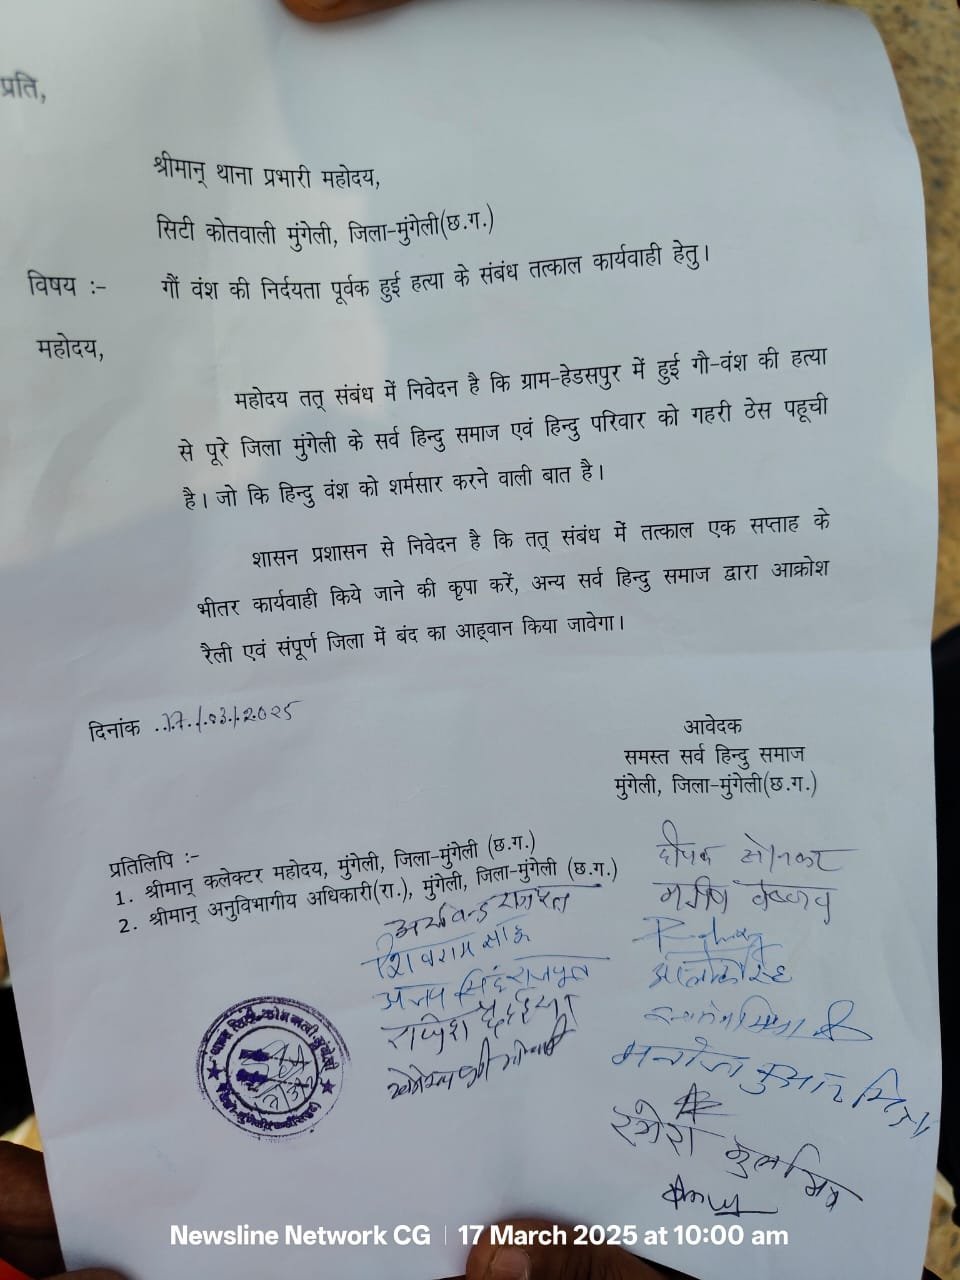 प्रति,
श्रीमान् थाना प्रभारी महोदय,
सिटी कोतवाली मुंगेली, जिला-मुंगेली(छ.ग.)
विषय :- गौं वंश की निर्दयता पूर्वक हुई हत्या के संबंध तत्काल कार्यवाही हेतु।
महोदय,
महोदय तत् संबंध में निवेदन है कि ग्राम-हेडसपुर में हुई गौ-वंश की हत्या
से पूरे जिला मुंगेली के सर्व हिन्दु समाज एवं हिन्दु परिवार को गहरी ठेस पहूची
है। जो कि हिन्दु वंश को शर्मसार करने वाली बात है।
शासन प्रशासन से निवेदन है कि तत् संबंध में तत्काल एक सप्ताह के
भीतर कार्यवाही किये जाने की कृपा करें, अन्य सर्व हिन्दु समाज द्वारा आक्रोश
रैली एवं संपूर्ण जिला में बंद का आह्वान किया जावेगा।
दिनांक ..17./.03./.2025
आवेदक
समस्त सर्व हिन्दु समाज
मुंगेली, जिला-मुंगेली(छ.ग.)
प्रतिलिपि :-
1. श्रीमान् कलेक्टर महोदय, मुंगेली, जिला-मुंगेली (छ.ग.)
2. श्रीमान् अनुविभागीय अधिकारी(रा.), मुंगेली, जिला-मुंगेली (छ.ग.)
दीपक सोनकर
मनीष वैष्णव
शिवराम साहू
अजय सिंह राजपूत
राजेश
मनोज कुमार मिश्रा
रमेश कुलमित्र
Newsline Network CG | 17 March 2025 at 10:00 am